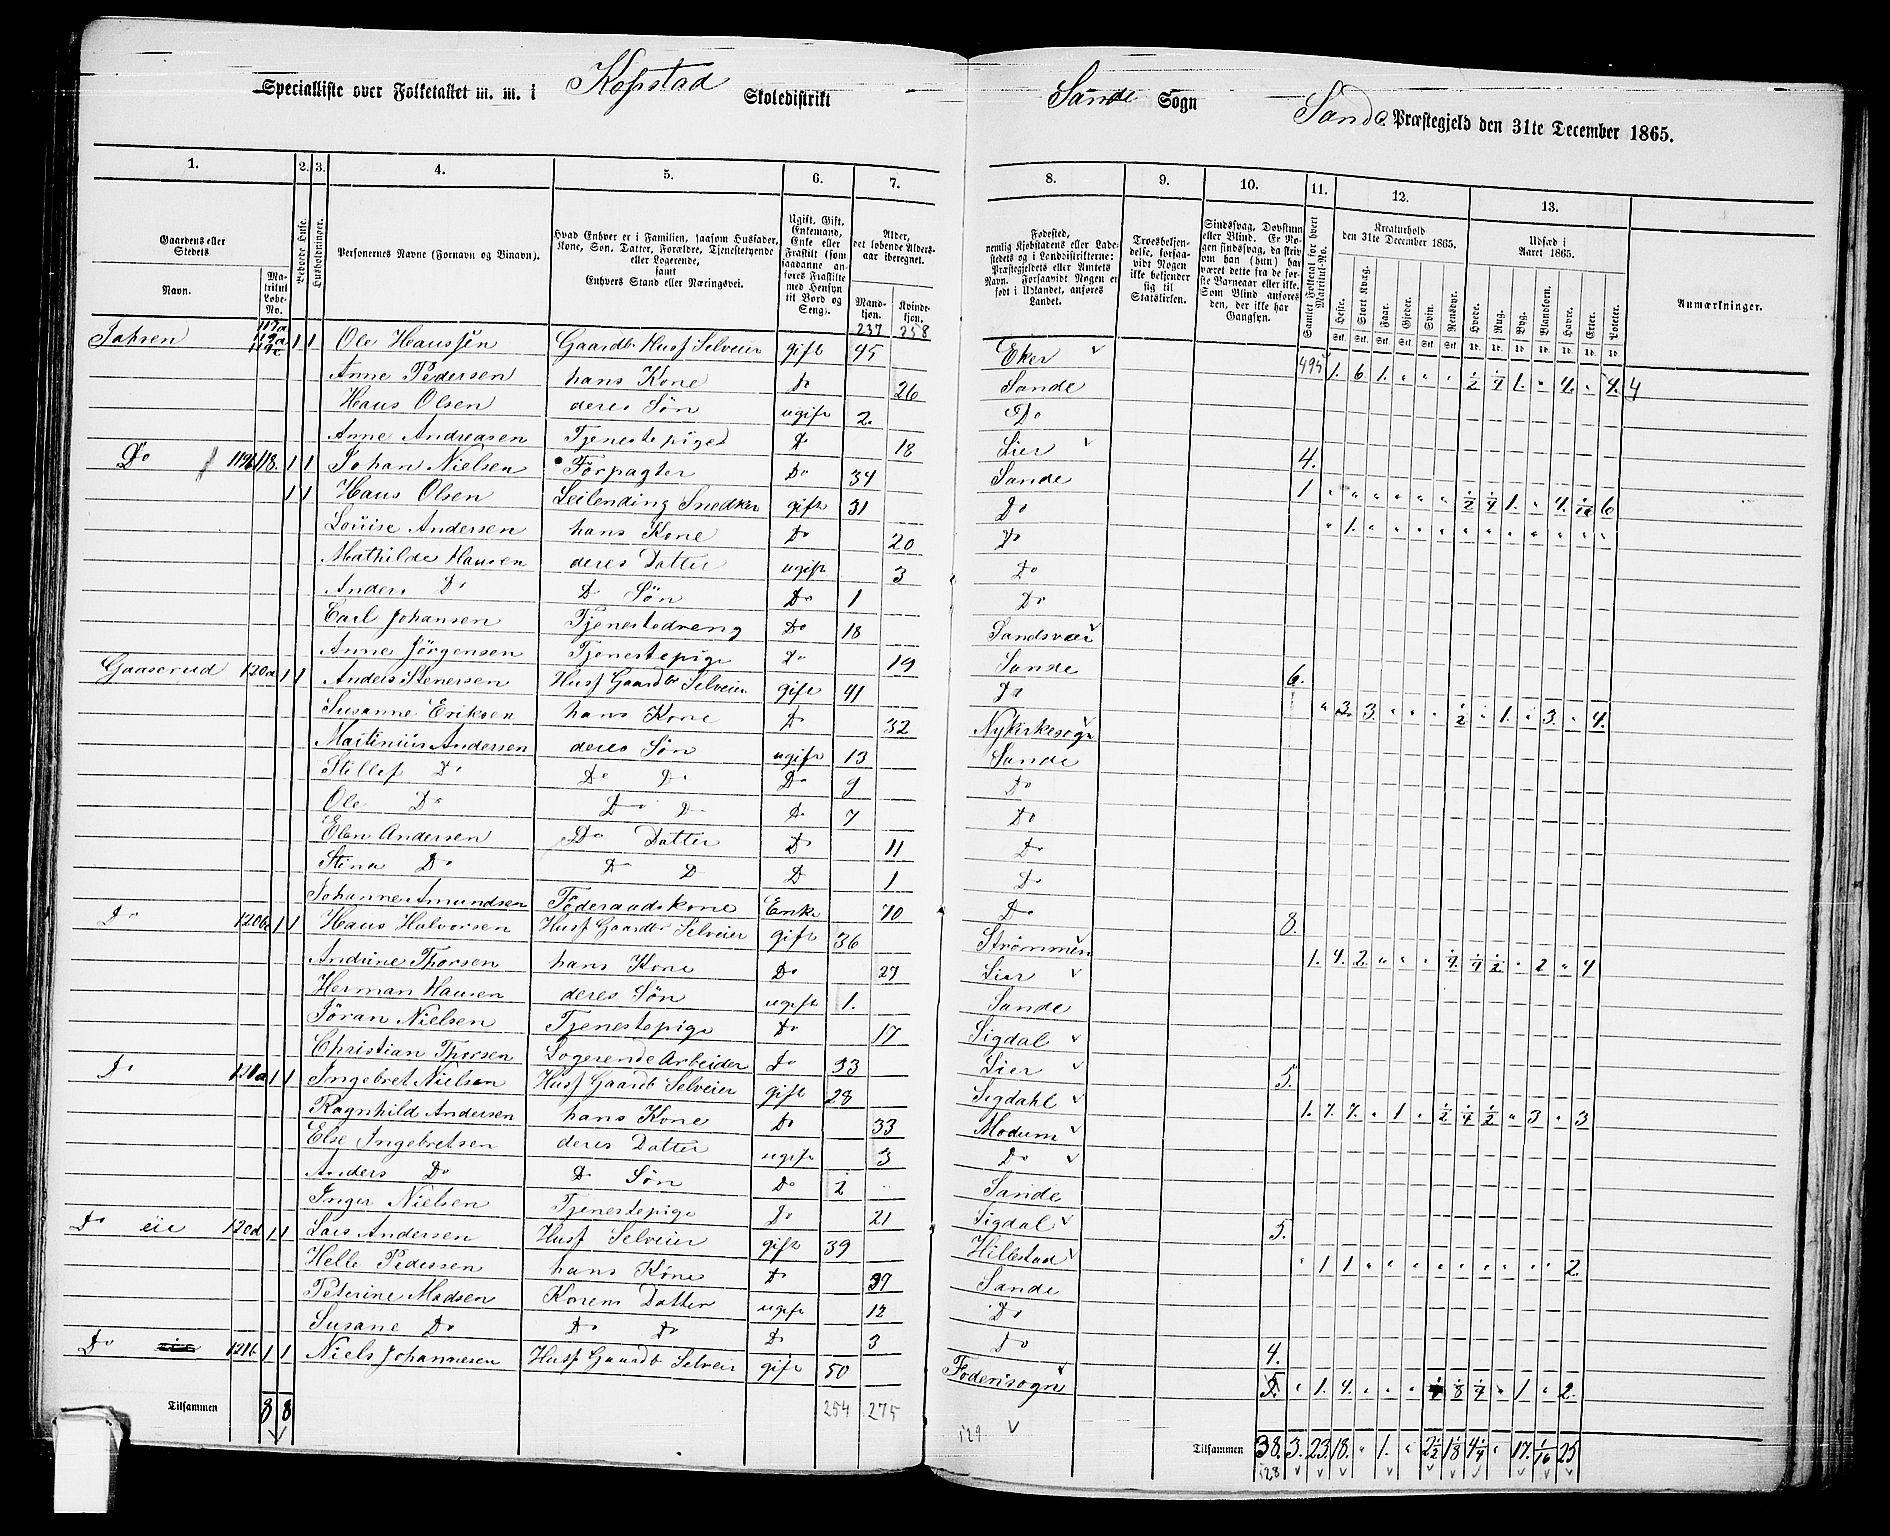 Specialliste over Folketallet m. m. i Kopstad Skoledistrikt Sande Sogn Sande Præstegjeld den 31te December 1865.
1. 2. 3. 4. 5. 6. 7. 8. 9. 10. 11. 12. 13.
Gaardens eller Stedets
Navn.
Matrikul Løbe-No.
Beboede Huse.
Husholdninger.
Personernes Navne (Fornavn og Binavn).
Hvad Enhver er i Familien, saasom Husfader, Kone, Søn, Datter, Forældre, Tjenestetyende eller Logerende, samt Enhvers Stand eller Næringsvei.
Ugift, Gift, Enkemand, Enke eller Fraskilt (som saadanne anføres Fraskilte med Hensyn til Bord og Seng).
Alder, det løbende Aldersaar iberegnet.
Mandkjøn. Kvindekjøn.
Fødested, nemlig Kjøbstadens eller Ladestedets og i Landdistrikterne: Præstegjeldets eller Amtets Navn. Forsaavidt Nogen er født i Udlandet, anføres Landet.
Troesbekjendelse, forsaavidt Nogen ikke bekjender sig til Statskirken.
Sindssvag, Døvstum eller Blind. Er Nogen sindssvag, da skriv om han (hun) har været dette fra de første Barneaar eller ikke. Som Blind anføres den, der ikke har Gangsyn.
Samlet Folketal for hvert Matrikul-No.
Kreaturhold den 31te December 1865.
Heste. Stort Kvæg. Faar. Gjeder. Svin. Rensdyr.
Udsæd i Aaret 1865.
Hvede. Rug. Byg. Blandkorn. Havre. Erter. Poteter.
Anmærkninger.
237 258
Jahren 117a 119a 119c 1 1 Ole Hanssen Gaardbr Husf Selveier gift 45 Eker 495
Anne Pedersen hans Kone Do 26 Sande 1. 6 1. " " " 1/2 1/4 1. " 4. " 4. 4
Hans Olsen deres Søn ugift 2. Do
Anne Andreasen Tjenestepige Do 18 Lier 4.
Do 119b 118. 1 1 Johan Nielsen Forpagter Do 34 Sande 1
1 1 Hans Olsen Leilending Snedker gift 31 Do
Louise Andersen hans Kone Do 20 Do
Mathilde Hansen deres Datter ugift 3 Do
Anders Do Do Søn Do 1 Do
Carl Johansen Tjenestedreng Do 18 Sandsvær
Anne Jörgensen Tjenestepige Do 19 Sande 6.
Gaaserud 120a 1 1 Anders Stenersen Husf Gaardbr Selveier gift 41 Do
Susanne Eriksen hans Kone Do 32 Nykirkesogn " 3. 3. " " " 1/2 " 1. " 3. " 4.
Martinius Andersen deres Søn ugift 13 Sande
Stillef Do Do Do Do 9 Do
Ole Do Do Do Do 7 Do
Elen Andersen Do Datter Do 11 Do
Stina Do Do D D 1 Do
Johanne Amundsen Føderaadskone Enke 70 Do 8.
Do 120b 1 1 Hans Halvorsen Husf Gaardbr Selveier gift 36 Strømmen
Andrine Thorsen hans Kone Do 27 Lier 1. 4. 2. " " " 1/4 1/4 1/2 " 2 " 4
Herman Hansen deres Søn ugift 1. Sande
Jöran Nielsen Tjenestepige Do 17 Sigdal
Christian Thorsen Logerende Arbeider Do 33 Lier 5.
Do 121a 1 1 Ingebret Nielsen Husf Gaardb Selveier gift 28 Sigdahl
Ragnhild Andersen hans Kone Do 33 Modum 1. 7. 7. " 1 " 1/2 1/4 1/2 " 3 " 3
Else Ingebretsen deres Datter ugift 3 Do
Anders Do D Søn Do 2 Sande
Inger Nielsen Tjenestepige Do 21 Sigdal 5.
Do eie 120d 1 1 Lars Andersen Husf Selveier gift 39 Hillestad
Helle Pedersen hans Kone Do 37 Sande
Peterine Madsen Konens Datter ugift 12 Do
Susane Do Do Do Do 3 Do 4.
Do 121b 1 1 Niels Johannesen Husf Gaardb Selveier gift 50 Fodensogn
Tilsammen 8 8 254 275 129 Tilsammen 38. 3. 23. 18. " 1. " 2 1/2 1/8 4 1/4 " 17. 1/16 25
128